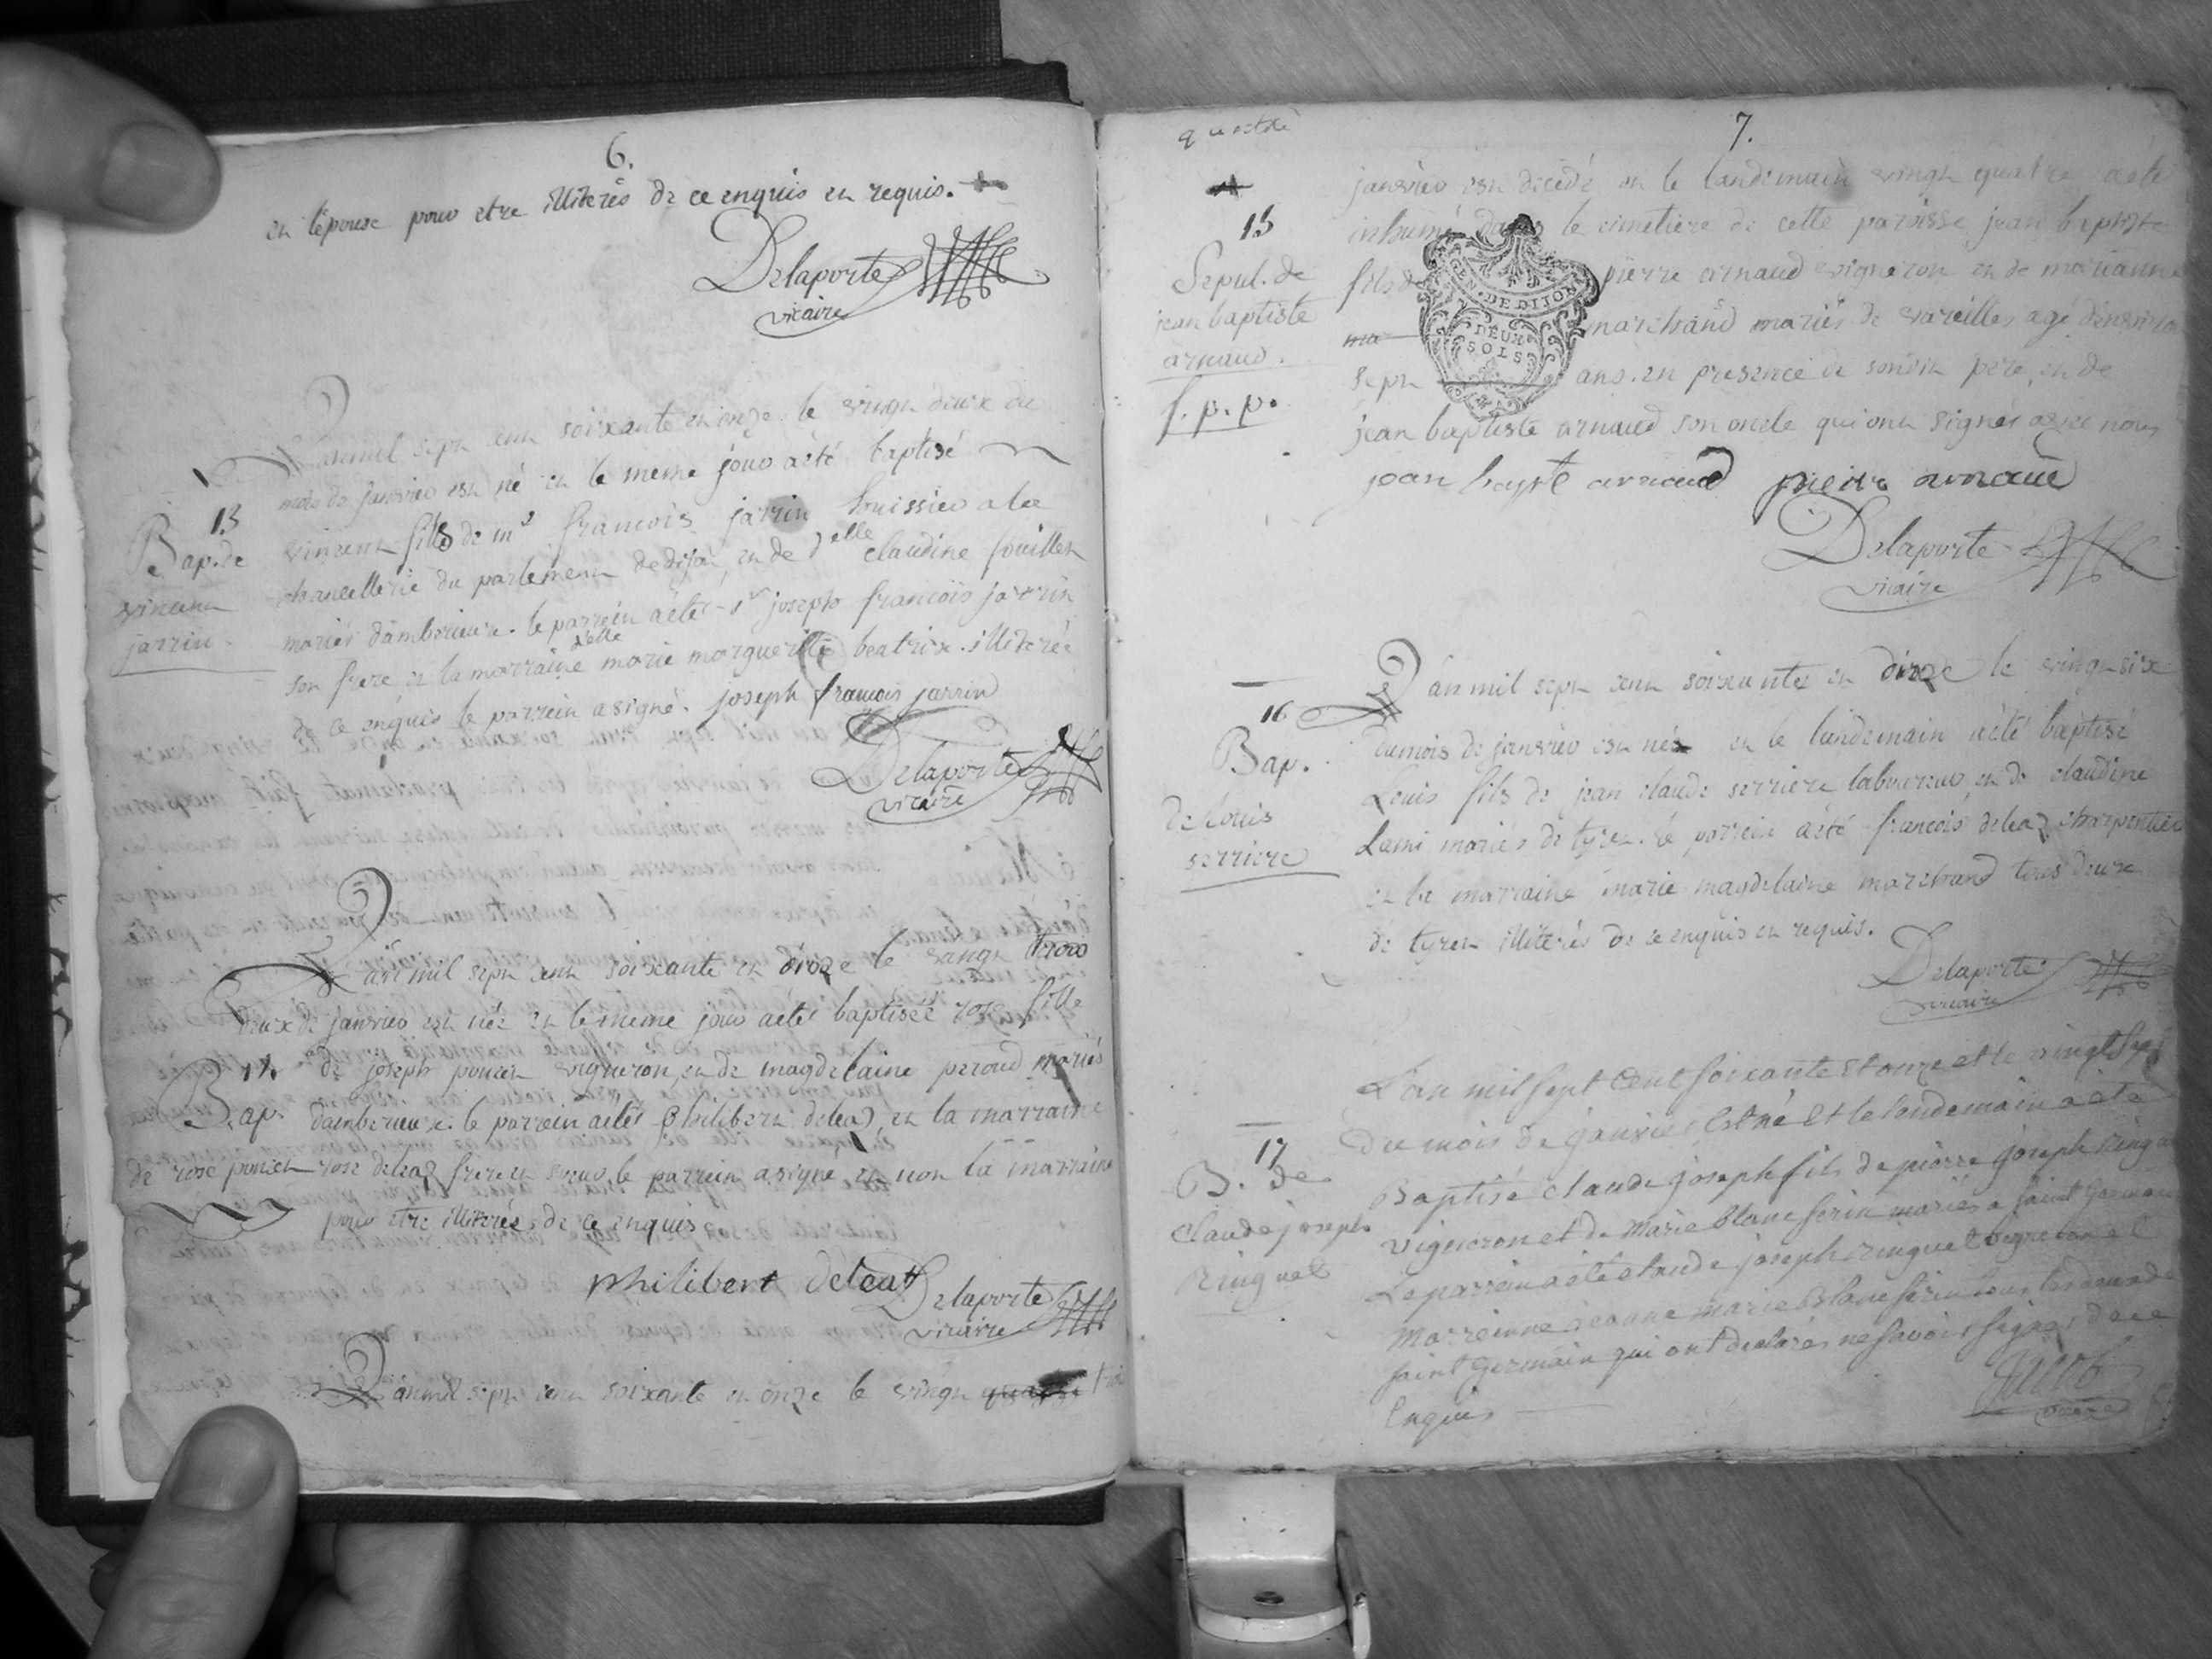 6.
et l'epouse pour etre illiterés de ce enquis et requis.
Delaporte
vicaire
L'an mil sept cent soixante et onze le vingt deux du
mois de janvier est né et le meme jour a été baptisé
13
Bap. de
vincent
jarrin
vincent fils de mr francois jarrin huissier a la
chancellerie du parlement de dijon, et de delle claudine fouillet
mariés d'amberieux. le parrein a été sr joseph francois jarrin
son frere et la marraine delle marie marguerite beatrix. illiterée
de ce enquis le parrein a signé. joseph francois jarrin
Delaporte
vicaire
L'an mil sept cent soixante et onze le vingt trois
deux de janvier est née et le meme jour a été baptisée rose fille
14
Bap.
de rose poncet
de joseph poncet vigneron, et de magdelaine peroud mariés
d'amberieux. le parrein a été philibert deleaz, et la marraine
rose deleaz frere et soeur, le parrein a signé et non la marraine
pour etre illiterée de ce enquis
philibert deleat
Delaporte
vicaire
L'an mil sept cent soixante et onze le vingt
7.
quattre
15
Sepul. de
jean baptiste
arnaud.
f. p. p.
janvier est decedé et le landemain vingt quatre a été
inhumé dans le cimetiere de cette paroisse jean baptiste
fils de pierre arnaud vigneron et de marianne
ma marchand mariés de vareilles agé d'environ
sept ans. en presence de sondit pere, et de
jean baptiste arnaud son oncle qui ont signés avec nous
GEN. DE DIJON
DEUX
SOLS
jean bapte arnaud pierre arnaud
Delaporte
vicaire
16
Bap.
de Louis
serriere
L'an mil sept cent soixante et onze le vingt six
du mois de janvier est né et le landemain a été baptisé
Louis fils de jean claude serriere laboureur, et de claudine
Lami mariés de tyret. le parrein a été francois deleaz charpentier
et la marraine marie magdelaine marchand tous deux
de tyret illiterés de ce enquis et requis.
Delaporte
vicaire
17
B. de
Claude joseph
Ringuet
L'an mil sept cent soixante et onze et le vingt sept
du mois de janvier est né et le landemain a été
Baptisé claude joseph fils de pierre joseph Ringuet
vigneron et de marie blanc ferin mariés a saint germain
Le parrein a été claude joseph ringuet vigneron et
Marreinne jeanne marie Blanc ferin tous les deux de
saint germain qui ont declarés ne savoir signer de ce
Enquis
Jacob
vicaire